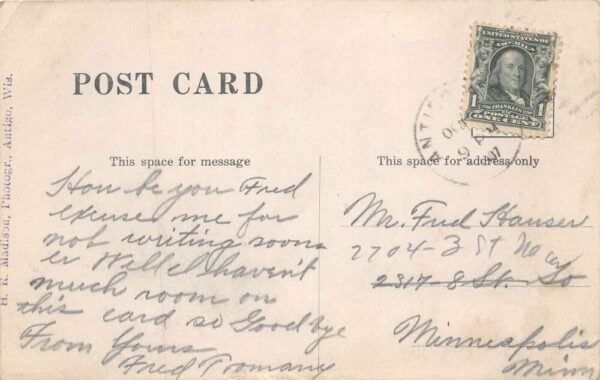 POST CARD
H. R. Madison, Photogr., Antigo, Wis.
UNITED STATES OF
AMERICA
1 FRANKLIN 1
POSTAGE
ONE CENT
ANTIGO
OCT
9 PM
This space for message
How be you Fred
excuse me for
not writing soon
er Well I haven't
much room on
this card so Good bye
From Yours
Fred Tromany
This space for address only
Mr. Fred Hauser
2704-3 St No
2317-8 St. So
Minneapolis
Minn